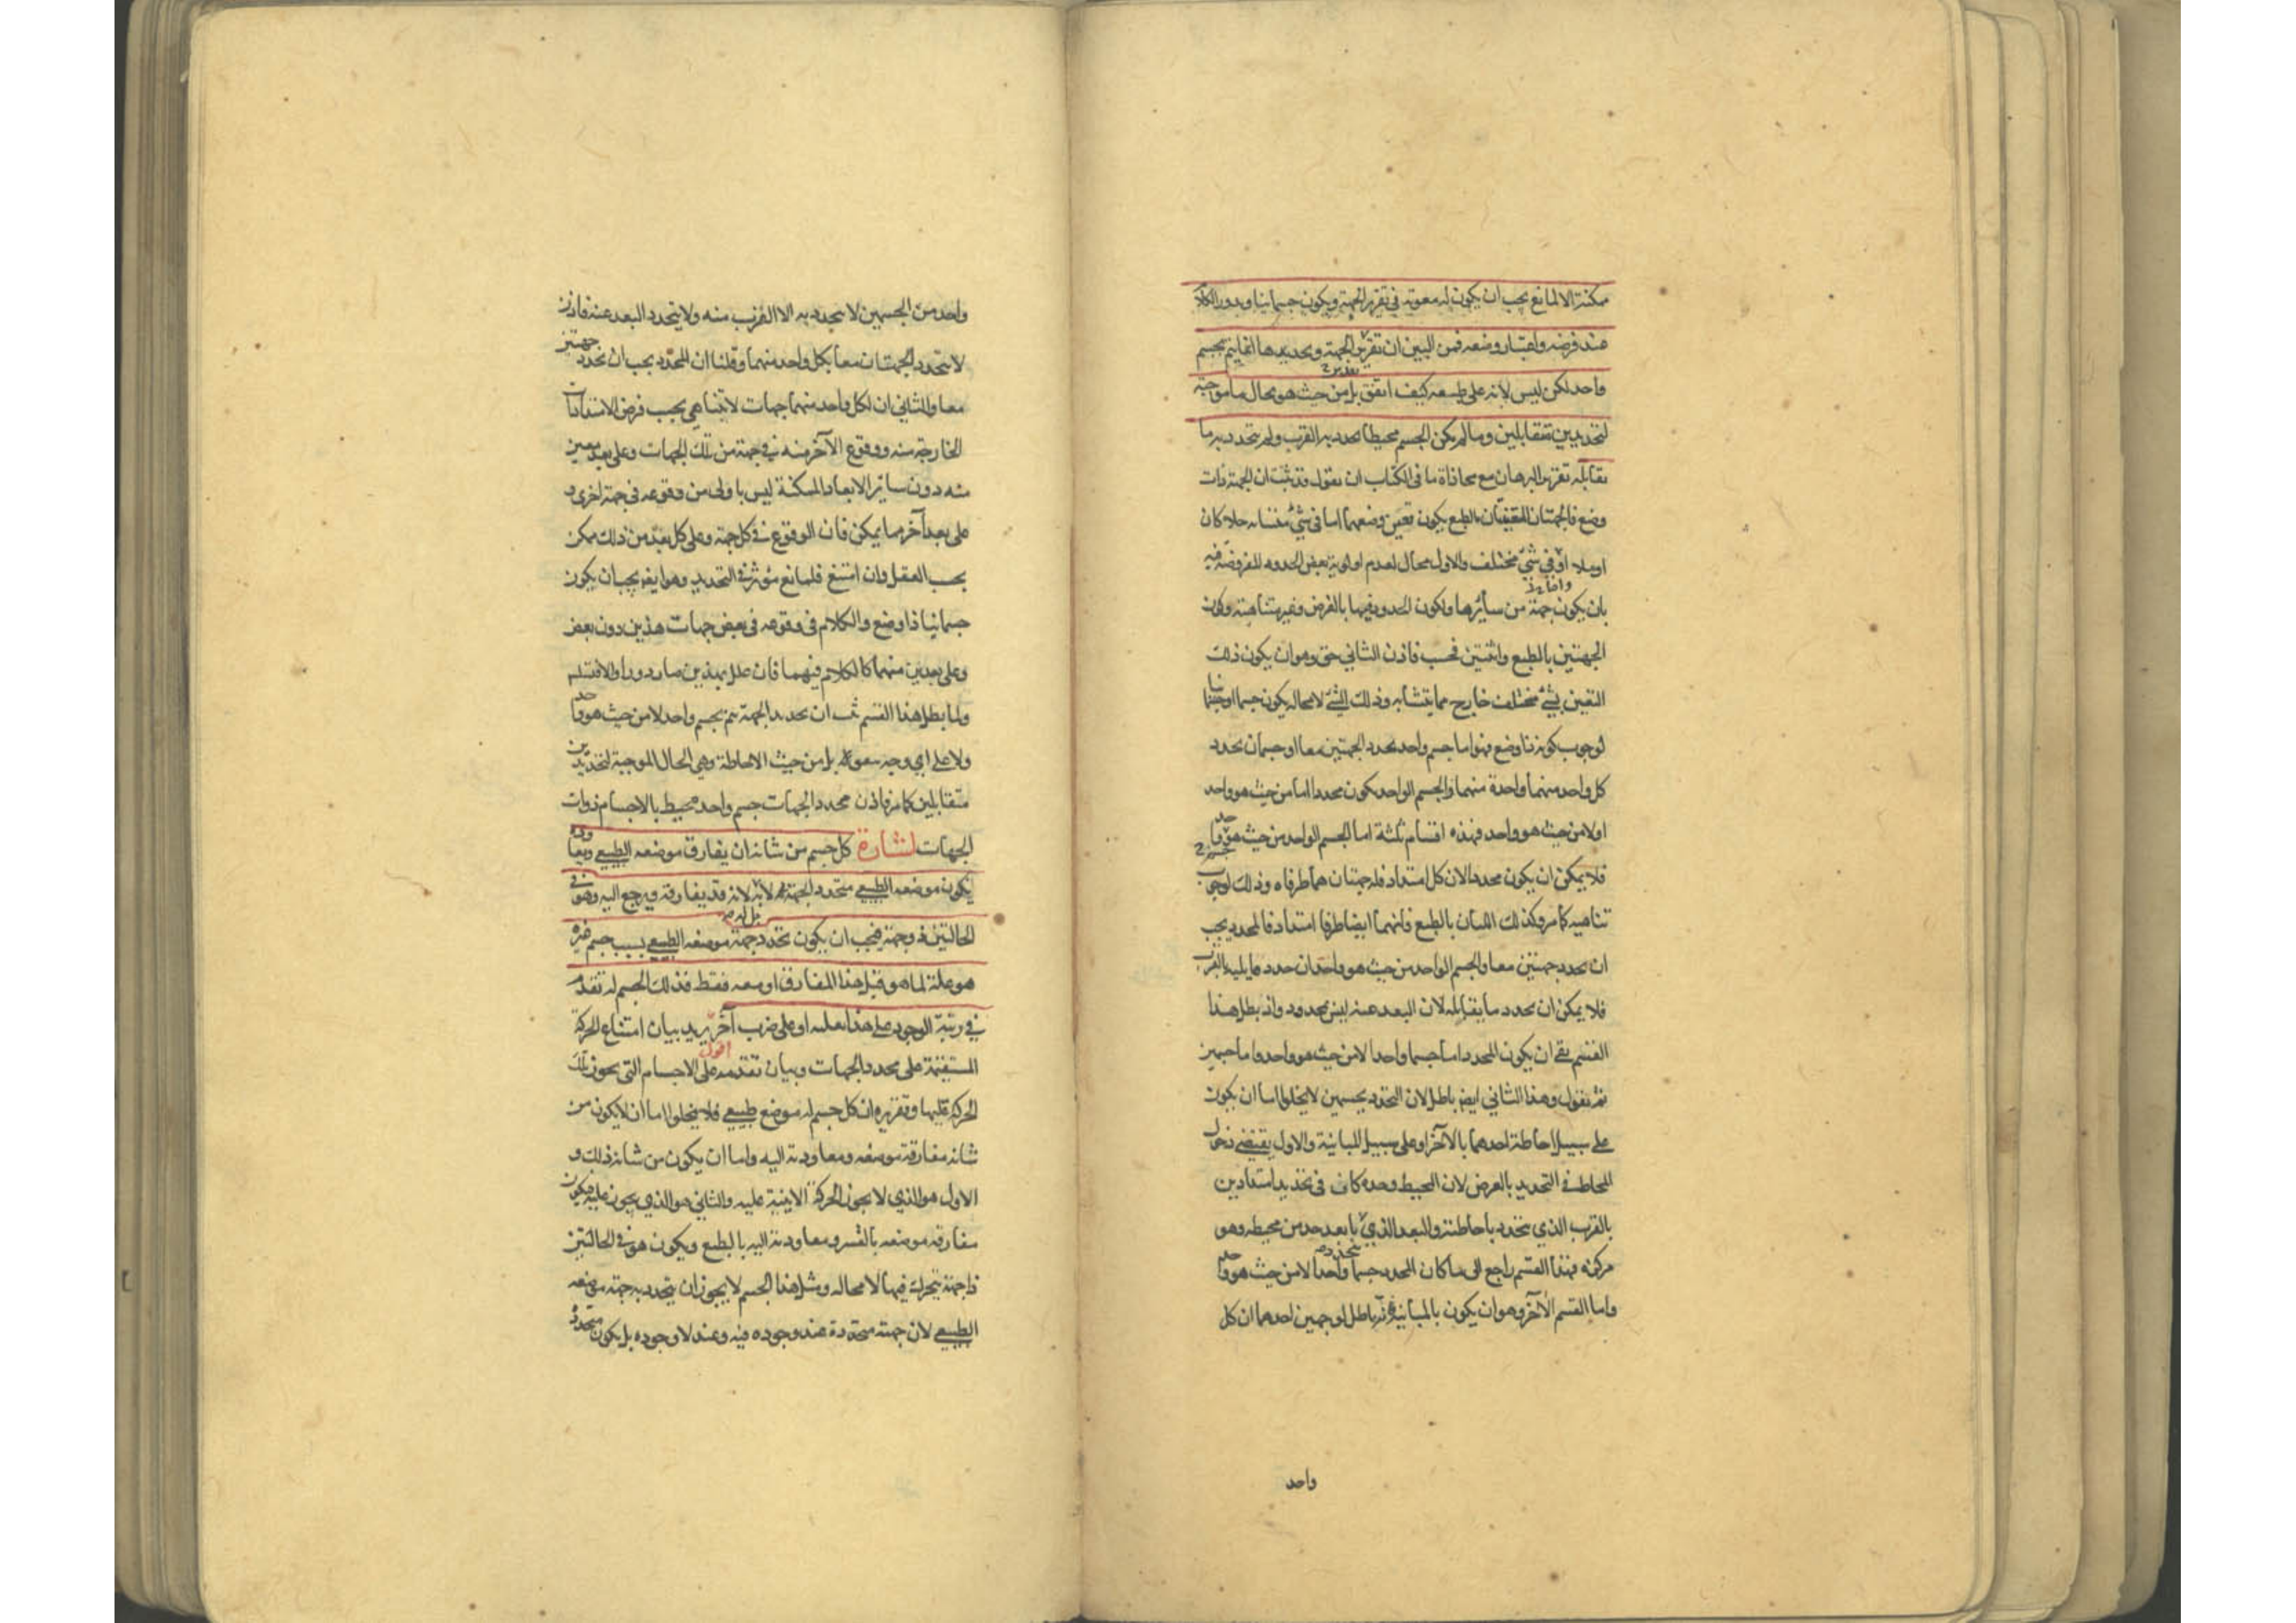 ممكنة الا لمانع يجب ان يكون له معونة في تقرير الجهة ويكون جسمانيا ويدور الكلام
عند فرضه واعتبار وضعه فمن البين ان تقرير الجهة وتحديدها انما يتم بجسم
واحد لكن ليس لانه على طبيعه كيف اتفق بل من حيث هو بحال ما موجبة
لتحديدين متقابلين وما لم يكن الجسم محيطا تحدد به القرب ولم يتحدد به ما
يقابله تقرير البرهان مع محاذاة ما في الكتاب ان نقول قد ثبت ان الجهة ذات
وضع فالجهتان المتعينتان بالطبع يكون تعين وضعهما اما في شئ متشابه خلا كان
او ملا او في شئ مختلف والاول محال لعدم اولوية بعض الحدود المفروضة فيه
بان يكون جهة من سائرها ولكون الحدود فيها بالفرض وغير متناهية وكون
الجهتين بالطبع واثنتين فحسب فاذن الثاني حق وهو ان يكون ذلك
التعين بشئ مختلف خارج مما يتشابه وذلك الشئ لا محاله يكون جسما او جسمانيا
لوجوب كونه ذا وضع فهو اما جسم واحد يحدد الجهتين معا او جسمان يحدد
كل واحد منهما واحدة منهما والجسم الواحد يكون محددا اما من حيث هو واحد
اولا من حيث هو واحد فهذه اقسام ثلثة اما الجسم الواحد من حيث هو واحد
فلا يمكن ان يكون محددا لان كل امتداد فله جهتان هما طرفاه وذلك لوجوب
تناهيه كما مر وكذلك اللتان بالطبع فانهما ايضا طرفا امتداد فالمحدد يجب
ان يحدد جهتين معا والجسم الواحد من حيث هو واحد ان حدد ما يليه بالقرب
فلا يمكن ان يحدد ما يقابله لان البعد عنه ليس بمحدود واذ بطل هذا
القسم بقي ان يكون المحدد اما جسما واحدا لا من حيث هو واحد واما جسمين
ثم نقول وهذا الثاني ايضا باطل لان التحدد بجسمين لا يخلو اما ان يكون
على سبيل احاطة احدهما بالآخر او على سبيل المباينة والاول يقتضي دخول
المحاط في التحديد بالعرض لان المحيط وحده كاف في تحديد امتدادين
بالقرب الذي يتحدد باحاطته والبعد الذي يتحدد بابعد حد من محيطه وهو
مركزه فهذا القسم راجع الى ما كان المحدد جسما واحدا لا من حيث هو واحد
واما القسم الآخر وهو ان يكون بالمباينة فانه باطل لوجهين احدهما ان كل
واحد
واحد من الجسمين لا يتحدد به الا القرب منه ولا يتحدد البعد عنه فاذن
لا تتحدد الجهتان معا بكل واحد منهما وقلنا ان المحدد يجب ان يحدد جهتين
معا والثاني ان لكل واحد منهما جهات لا تتناهى بحسب فرض الامتدادات
الخارجة منه ووقوع الآخر منه في جهة من تلك الجهات وعلى بعد معين
منه دون سائر الابعاد الممكنة ليس باولى من وقوعه في جهة اخرى و
على بعد آخر مما يمكن فان الوقوع في كل جهة وعلى كل بعد من ذلك ممكن
بحسب العقل وان امتنع فلمانع مؤثر في التحديد وهو ايضا يجب ان يكون
جسمانيا ذا وضع والكلام في وقوعه في بعض جهات هذين دون بعض
وعلى بعدين منهما كالكلام فيهما فان علل بهذين صار دورا والا تسلسل
ولما بطل هذا القسم ثبت ان تحديد الجهة يتم بجسم واحد لا من حيث هو واحد
ولا على اي وجه بل من حيث الاحاطة وهي الحال الموجبة لتحديدين
متقابلين كما مر فاذن محدد الجهات جسم واحد محيط بالاجسام ذوات
الجهات اشارة كل جسم من شانه ان يفارق موضعه الطبيعي ويعاوده
يكون موضعه الطبيعي متحدد الجهة لا به لانه قد يفارقه ويرجع اليه وهو في
الحالتين ذو جهة فيجب ان يكون تحدد جهة موضعه الطبيعي بسبب جسم غيره
هو علة لما هو قبل هذا المفارق او معه فقط فذلك الجسم له تقدم
في رتبة الوجود على هذا بعلية او على ضرب آخر يريد بيان امتناع الحركة
المستقيمة على محدد الجهات وبيان تقدمه على الاجسام التي يجوز تلك
الحركة عليها وتقريره ان كل جسم له موضع طبيعي فلا يخلوا اما ان لا يكون من
شانه مفارقة موضعه ومعاودته اليه واما ان يكون من شانه ذلك و
الاول هو الذي لا يجوز الحركة الاينية عليه والثاني هو الذي يجوز عليه فيكون
مفارقة موضعه بالقسر ومعاودته اليه بالطبع ويكون هو في الحالتين
ذا جهة يتحرك فيها لا محاله ومثل هذا الجسم لا يجوز ان يتحدد به جهة موضعه
الطبيعي لان جهته متحددة عند وجوده فيه وعند لا وجوده بل يكون متحددا